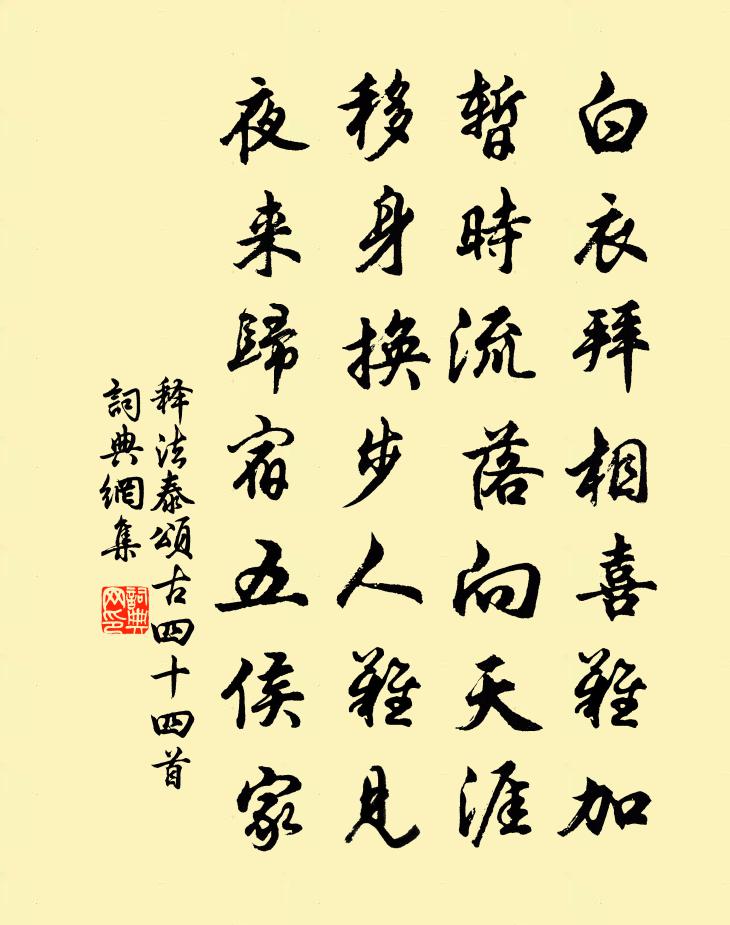 白衣拜相喜難加
暫時流落向天涯
移身換步人難見
夜来歸宿五侯家
释法泰頌古四十四首
詞典網集
詞典网印